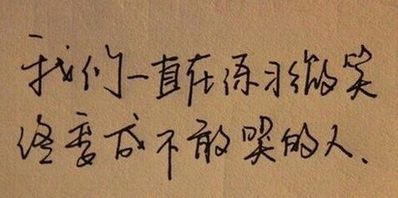 我们一直在练习微笑
终要成不敢哭的人、